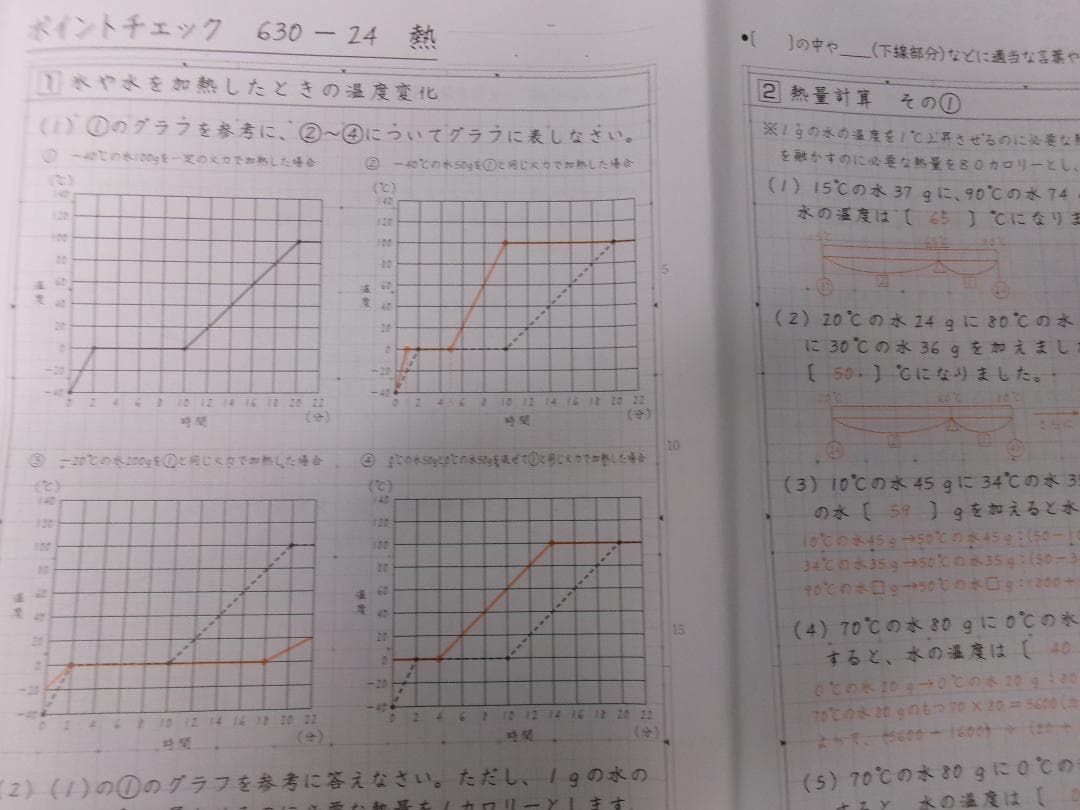 ポイントチェック 630－24 熱
1 氷や水を加熱したときの温度変化
(1) ①のグラフを参考に、②～④についてグラフに表しなさい。
① －40℃の氷100gを一定の火力で加熱した場合
② －40℃の氷50gを①と同じ火力で加熱した場合
(℃)
140
120
100
80
60
40
20
0
－20
－40
温度
0 2 4 6 8 10 12 14 16 18 20 22
時間
(分)
(℃)
140
120
100
80
60
40
20
0
－20
－40
温度
0 2 4 6 8 10 12 14 16 18 20 22
時間
(分)
③ －20℃の氷200gを①と同じ火力で加熱した場合
④ 0℃の氷50gと0℃の水50gを混ぜて①と同じ火力で加熱した場合
(℃)
140
120
100
80
60
40
20
0
－20
－40
温度
0 2 4 6 8 10 12 14 16 18 20 22
時間
(分)
(℃)
140
120
100
80
60
40
20
0
－20
－40
温度
0 2 4 6 8 10 12 14 16 18 20 22
時間
(分)
(2) (1)の①のグラフを参考に答えなさい。ただし、1gの水の
5
10
15
●[ ]の中や___(下線部分)などに適当な言葉や
2 熱量計算 その①
※1gの水の温度を1℃上昇させるのに必要な
を融かすのに必要な熱量を80カロリーとし、
(1) 15℃の水37gに、90℃の水74
水の温度は[ 65 ]℃になりま
(2) 20℃の水24gに80℃の水
に30℃の水36gを加えまし
[ 50 ]℃になりました。
(3) 10℃の水45gに34℃の水35
の水[ 59 ]gを加えると水
10℃の水45g→50℃の水45g:(50－10
34℃の水35g→50℃の水35g:(50－3
90℃の水□g→50℃の水□g:
(4) 70℃の水80gに0℃の
すると、水の温度は[ 40
0℃の氷20g→0℃の水20g:80
70℃の水80gのもつ70×80＝5600(カ
よって、(5600－1600)÷(20＋
(5) 70℃の水80gに0℃の
すると、水の温度は[